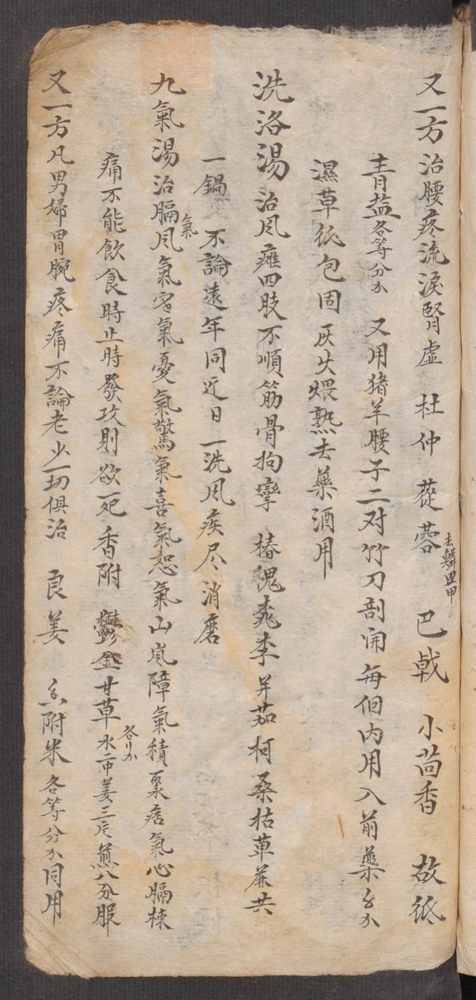 又一方治腰疼流淚腎虛 杜仲 蓯蓉去鱗甲 巴戟 小茴香 故紙
青盐各等分 又用猪羊腰子二对竹刀剖開每個内用入前藥
濕草紙包固灰火煨熟去藥酒用
洗洛湯治风癱四肢不順筋骨拘攣 椿槐桃李并茄柯桑枯草兼共
一鍋 不論遠年同近日一洗风疾尽消磨
九氣湯治膈氣风氣寒氣憂氣驚氣喜氣怒氣山嵐障氣積聚痞氣心膈
痛不能飲食時止時發攻則欲死 香附 鬱金甘草 水二中姜三片煎八分服
又一方凡男婦胃腕疼痛不論老少一切俱治 良姜 附米各等分同用